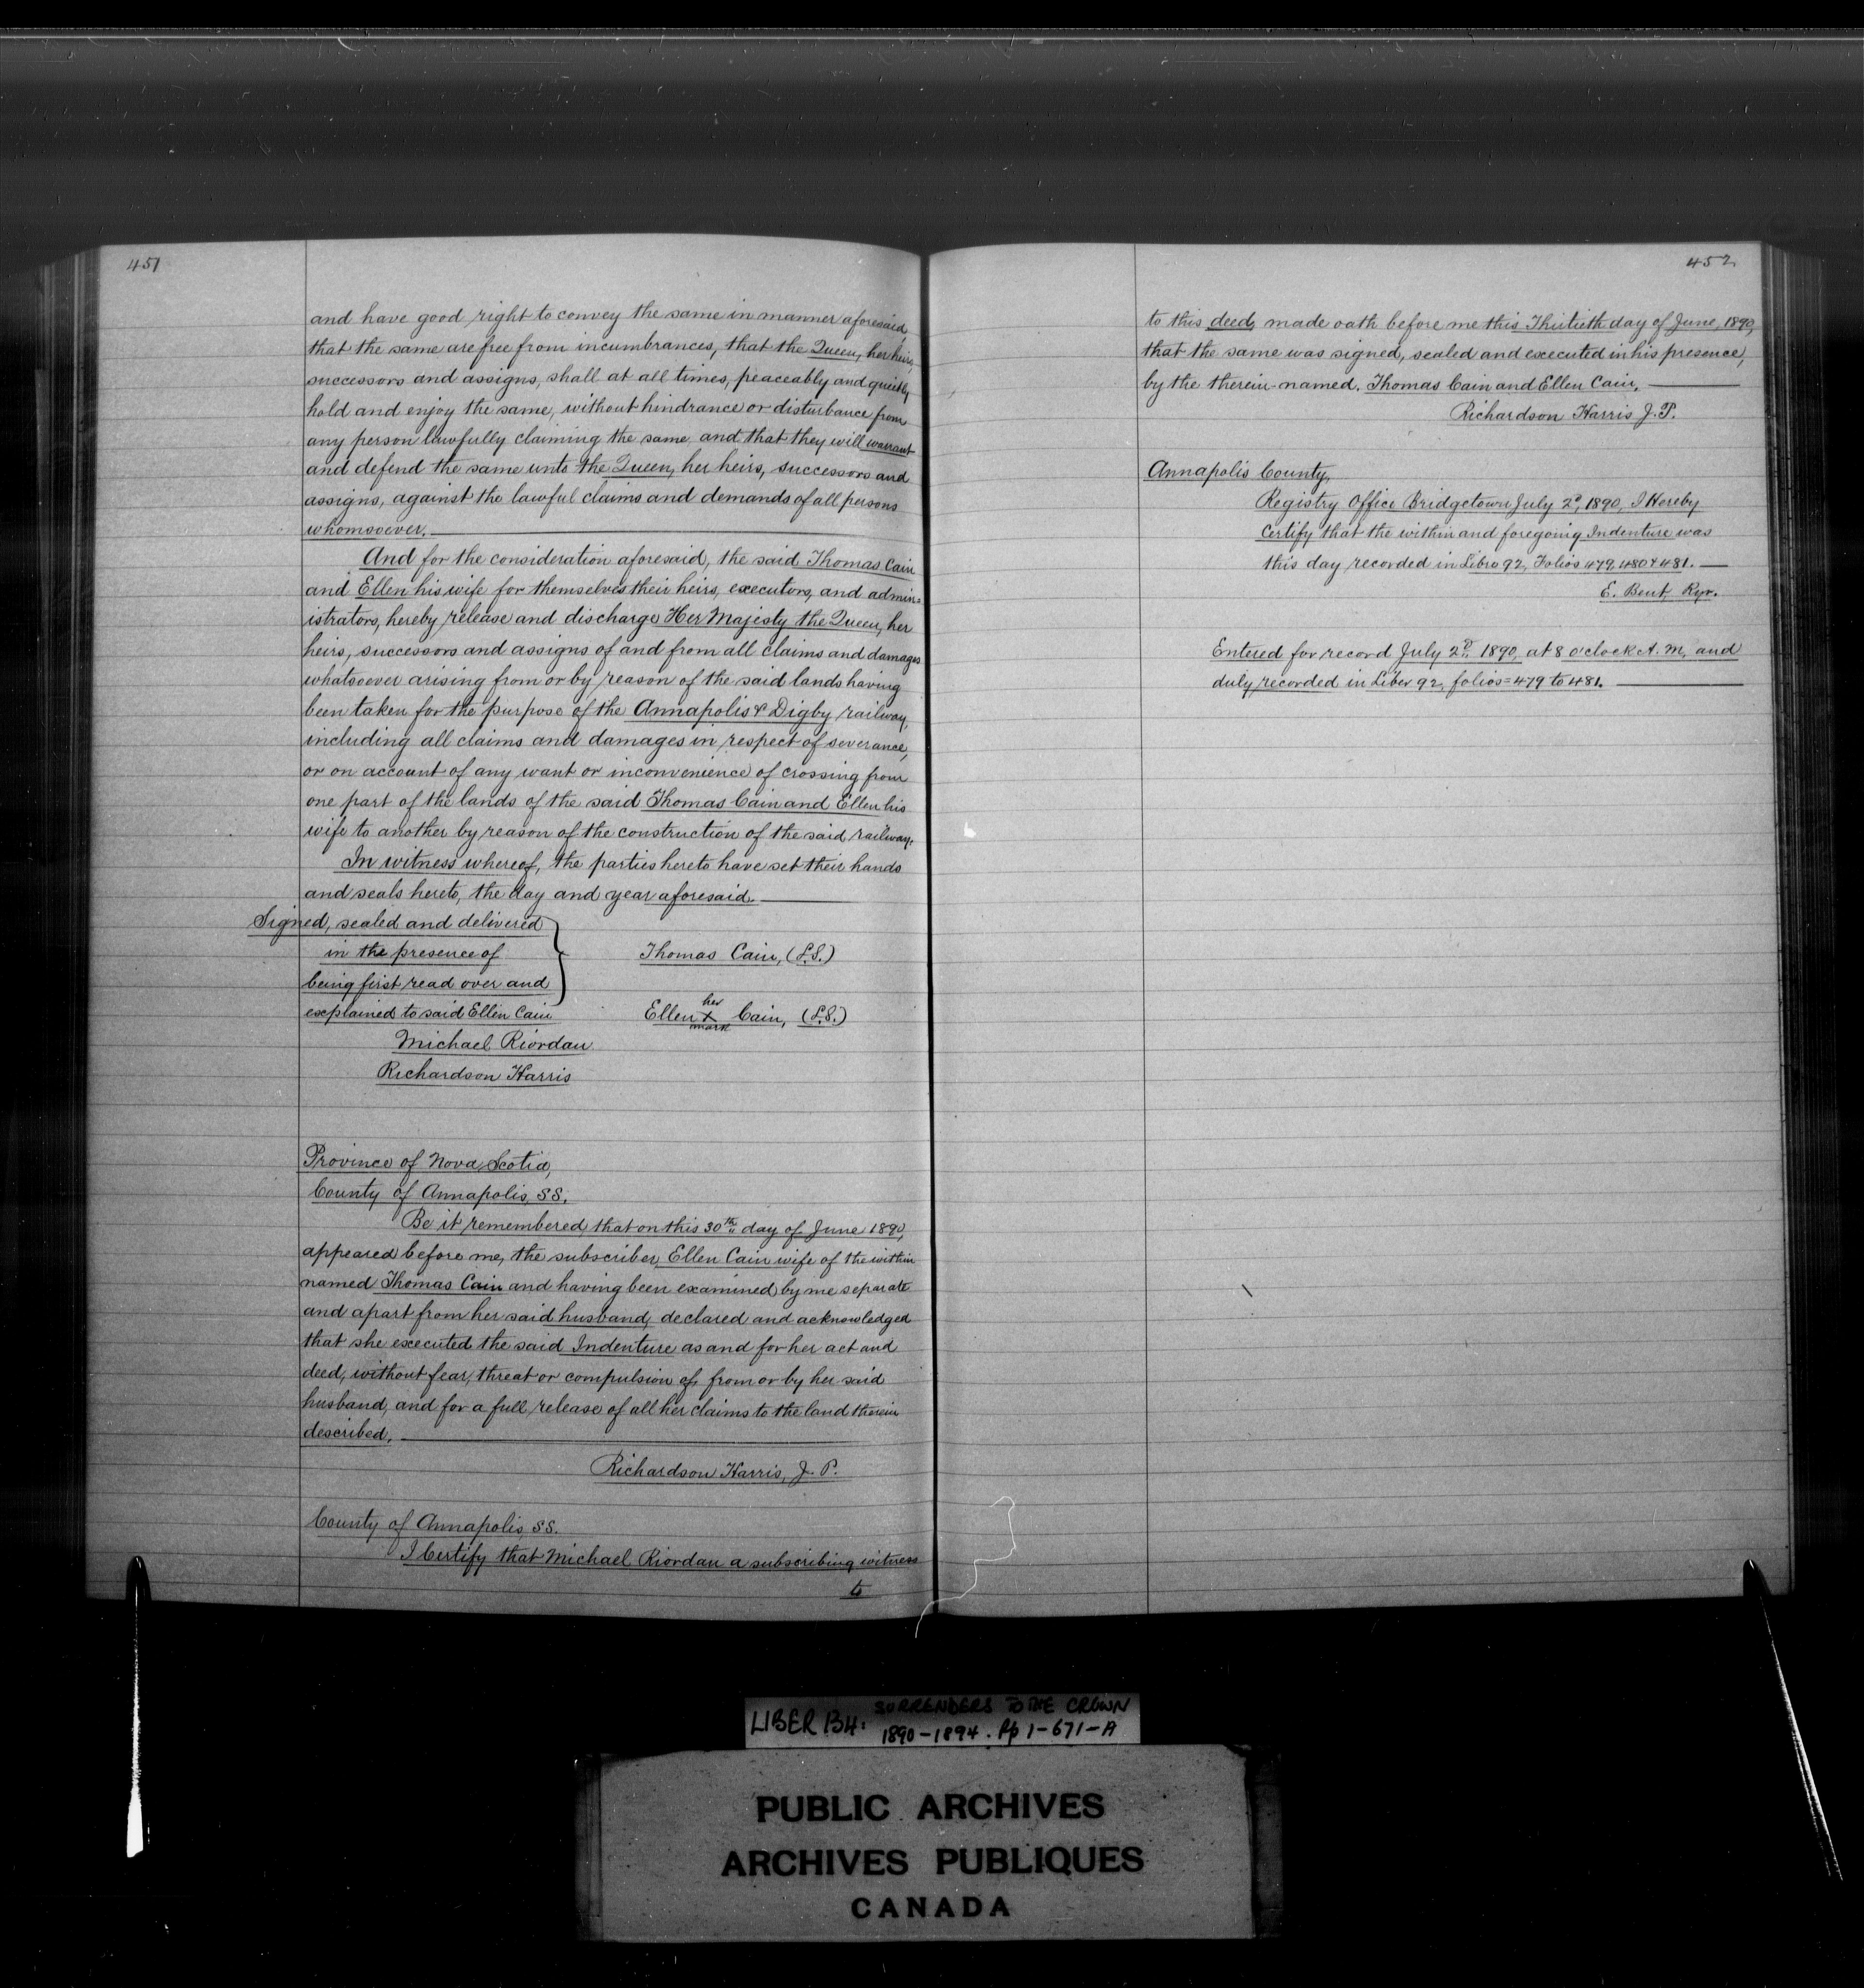 451
and have good right to convey the same in manner aforesaid,
that the same are free from incumbrances, that the Queen, her heirs,
successors and assigns, shall at all times, peaceably and quietly
hold and enjoy the same, without hindrance or disturbance from
any person lawfully claiming the same and that they will warrant
and defend the same unto the Queen, her heirs, successors and
assigns, against the lawful claims and demands of all persons
whomsoever.
And for the consideration aforesaid, the said Thomas Cain
and Ellen his wife for themselves their heirs, executors, and admin=
istrators, hereby release and discharge Her Majesty the Queen, her
heirs, successors and assigns of and from all claims and damages
whatsoever arising from or by reason of the said lands having
been taken for the purpose of the Annapolis & Digby railway,
including all claims and damages in respect of severance,
or on account of any want or inconvenience of crossing from
one part of the lands of the said Thomas Cain and Ellen his
wife to another by reason of the construction of the said railway.
In witness whereof, the parties hereto have set their hands
and seals hereto, the day and year aforesaid.
Signed, sealed and delivered
in the presence of
being first read over and
explained to said Ellen Cain
Michael Riordan
Richardson Harris
Thomas Cain, (L.S.)
her
Ellen X Cain, (L.S.)
mark
Province of Nova Scotia,
County of Annapolis, SS.
Be it remembered that on this 30th day of June 1890,
appeared before me, the subscriber Ellen Cain wife of the within
named Thomas Cain and having been examined by me separate
and apart from her said husband, declared and acknowledged
that she executed the said Indenture as and for her act and
deed, without fear, threat or compulsion of, from or by her said
husband, and for a full release of all her claims to the land therein
described.
Richardson Harris, J. P.
County of Annapolis, SS.
I Certify that Michael Riordan a subscribing witness
to
452
to this deed, made oath before me this Thirtieth day of June, 1890,
that the same was signed, sealed and executed in his presence,
by the therein-named, Thomas Cain and Ellen Cain.
Richardson Harris J. P.
Annapolis County,
Registry Office Bridgetown July 2d, 1890, I Hereby
Certify that the within and foregoing Indenture was
this day recorded in Libro 92, Folios 479, 480 & 481.
E. Bent, Rgr.
Entered for record July 2d 1890, at 8 o'clock A. M, and
duly recorded in Liber 92, folios = 479 to 481.
LIBER B4: SURRENDERS TO THE CROWN
1890-1894. Pp 1-671-A
PUBLIC ARCHIVES
ARCHIVES PUBLIQUES
CANADA